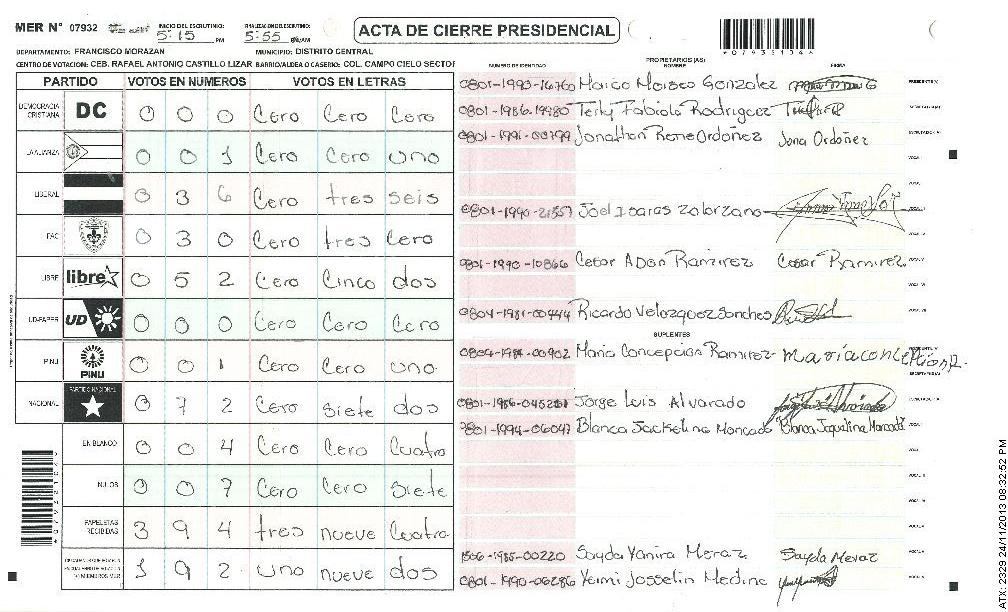 MER N° 07932 INICIO DEL ESCRUTINIO: 5:15 PM FINALIZACION DEL ESCRUTINIO: 5:55
ACTA DE CIERRE PRESIDENCIAL
DEPARTAMENTO: FRANCISCO MORAZAN MUNICIPIO: DISTRITO CENTRAL
CENTRO DE VOTACION: CEB. RAFAEL ANTONIO CASTILLO LIZAR BARRIO/ALDEA O CASERIO: COL. CAMPO CIELO SECTOR
PARTIDO VOTOS EN NUMEROS VOTOS EN LETRAS
DEMOCRACIA CRISTIANA DC 0 0 0 Cero Cero Cero
LA ALIANZA 0 0 1 Cero Cero uno
LIBERAL 0 3 6 Cero tres seis
FAC 0 3 0 Cero tres Cero
LIBRE libre 0 5 2 Cero Cinco dos
UD-FAPER UD 0 0 0 Cero Cero Cero
PINU PINU 0 0 1 Cero Cero uno
NACIONAL PARTIDO NACIONAL 0 7 2 Cero siete dos
EN BLANCO 0 0 4 Cero Cero Cuatro
NULOS 0 0 7 Cero Cero siete
PAPELETAS RECIBIDAS 3 9 4 tres nueve Cuatro
1 9 2 uno nueve dos
PROPIETARIOS (AS)
NUMERO DE IDENTIDAD NOMBRE FIRMA
0801-1993-16760 Marco Moises Gonzalez
0801-1986-19980 Terly Fabiola Rodriguez
0801-1991-00799 Jonathan Rene Ordoñez Jona Ordoñez
0801-1990-21557 Joel Isaias Zalorzano
0801-1990-10866 Cesar Adan Ramirez Cesar Ramirez
0804-1981-00444 Ricardo Velazquez Sanches
SUPLENTES
0804-1984-00902 Maria Concepcion Ramirez Maria Concepcion R.
Jorge Luis Alvarado
0801-1994-06047 Blanca Jackelina Moncada Blanca Jaquelina Moncada
1506-1985-00220 Sayda Yanira Meraz Sayda Meraz
0801-1990-06286 Yeimi Josselin Medina
ATX: 2329 24/11/2013 08:32:52 PM